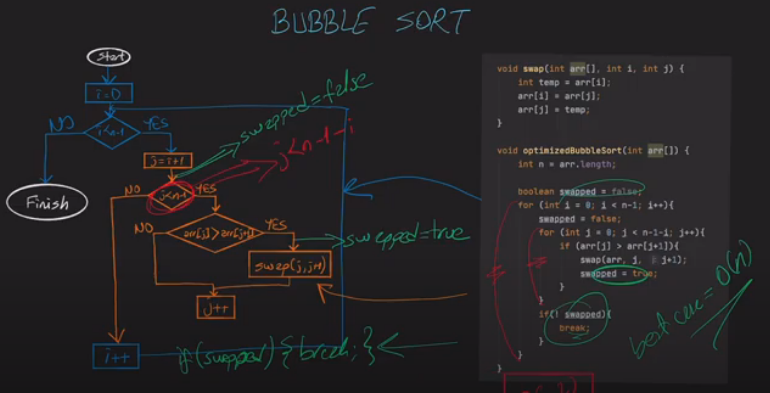 BUBBLE SORT
Start
i=0
i<n-1
NO
YES
swapped=false
j<n-1-i
j=i+1
j<n-1
NO
YES
Finish
arr[j]>arr[j+1]
NO
YES
swapped=true
swap(j,j+1)
j++
i++
if(swapped){break;}
void swap(int arr[], int i, int j) {
int temp = arr[i];
arr[i] = arr[j];
arr[j] = temp;
}
void optimizedBubbleSort(int arr[]) {
int n = arr.length;
boolean swapped = false;
for (int i = 0; i < n-1; i++){
swapped = false;
for (int j = 0; j < n-1-i; j++){
if (arr[j] > arr[j+1]){
swap(arr, j, j+1);
swapped = true;
}
}
if(! swapped){
break;
}
}
}
best case = O(n)